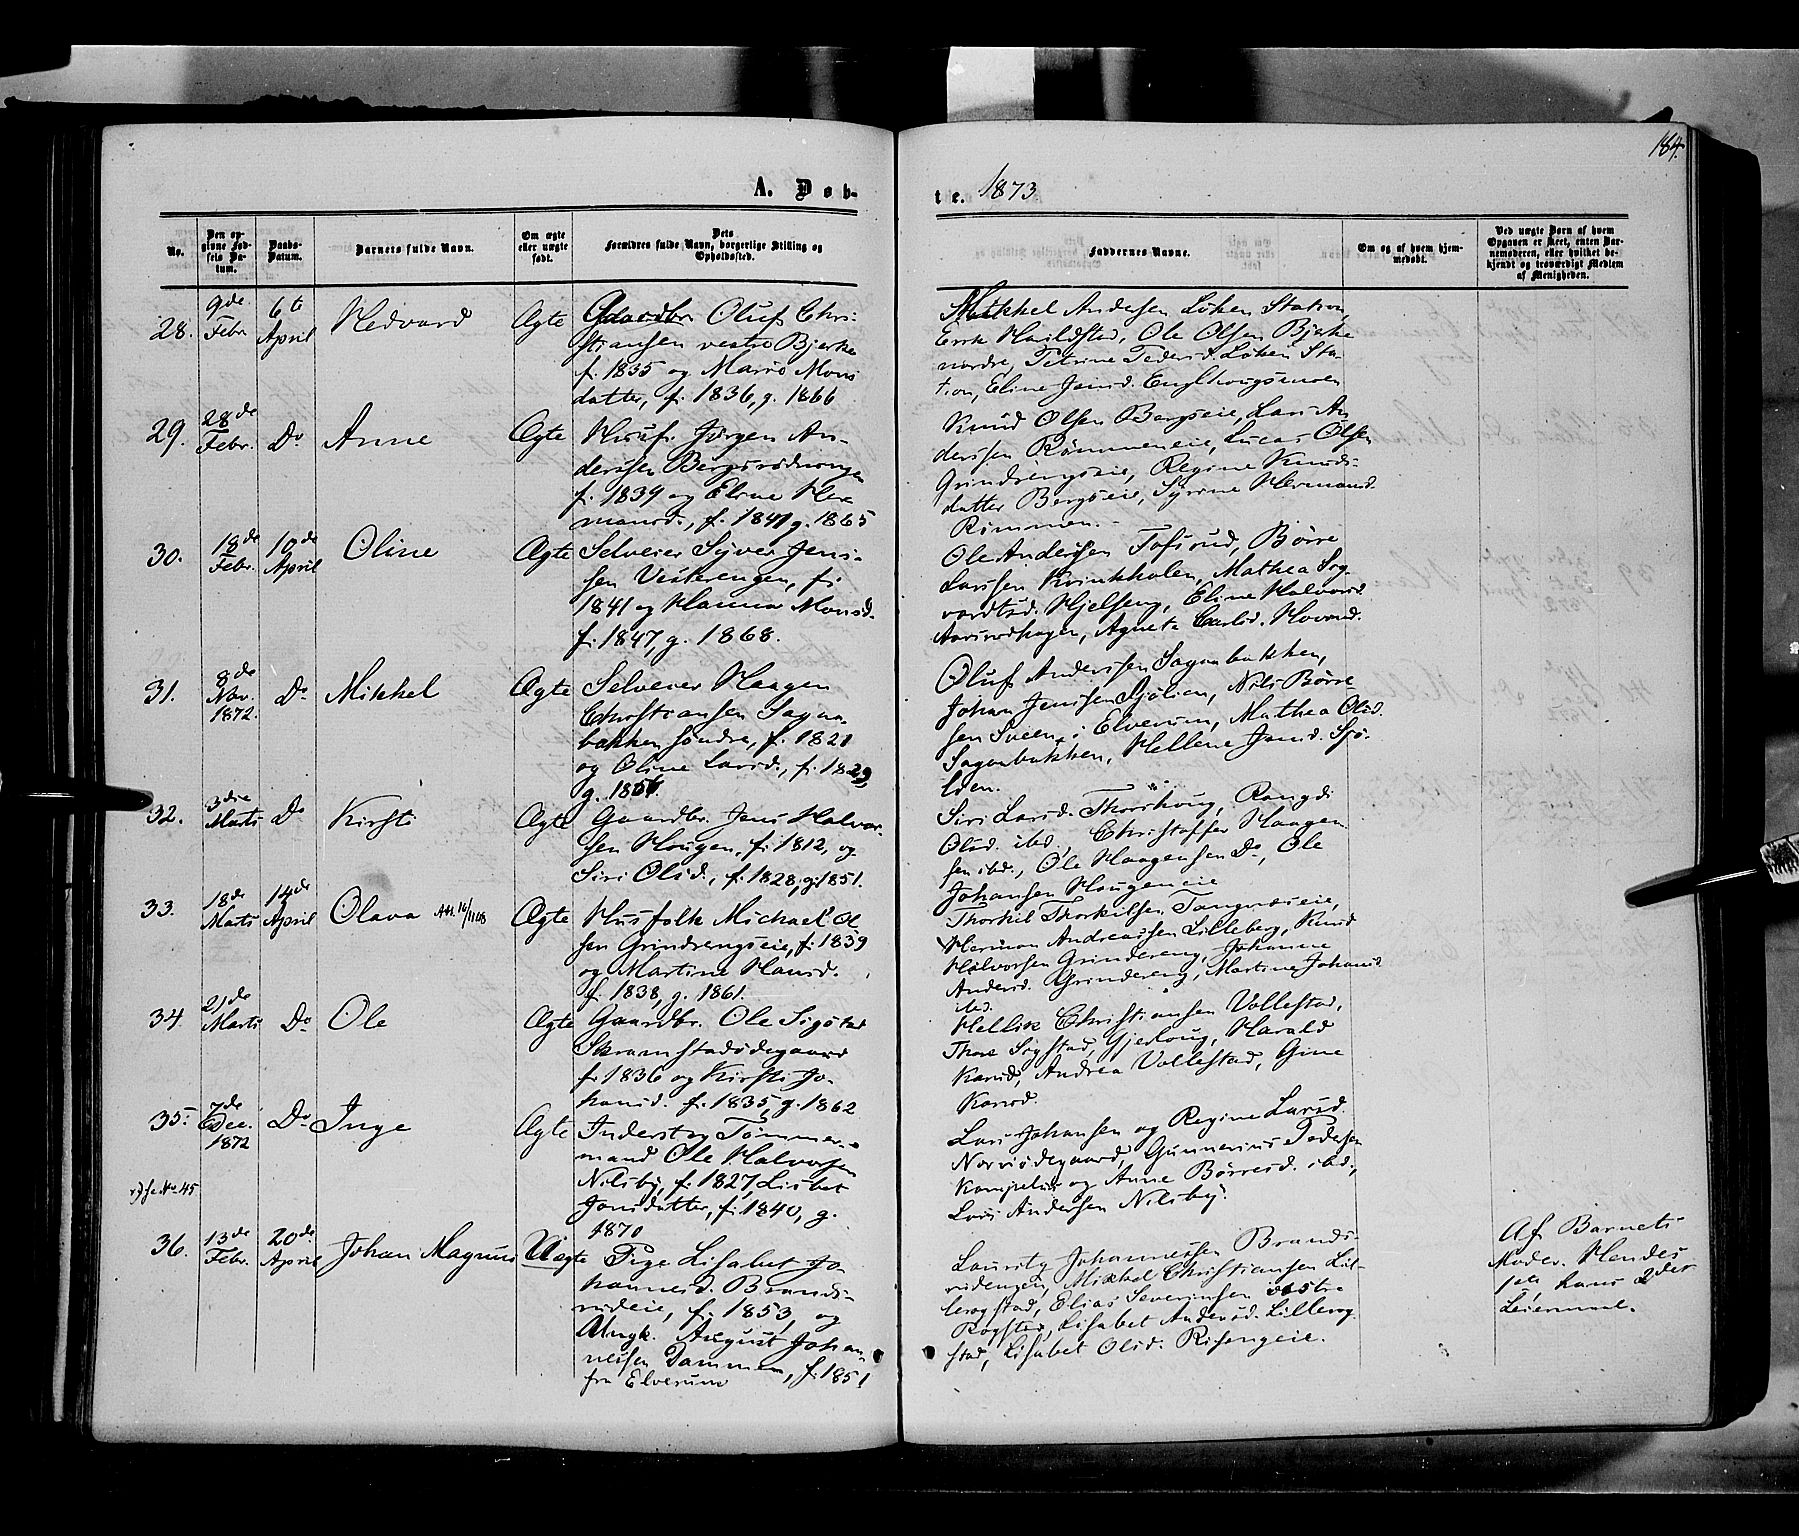 184.
A. Døb-
te. 1873
No.
Den op-
givne Fød-
sels Da-
tum.
Daabs-
Datum.
Barnets fulde Navn.
Om ægte
eller uægte
født.
Dets
Forældres fulde Navn, borgerlige Stilling og
Opholdssted.
Faddernes Navne.
Om og af hvem hjem-
medøbt.
Ved uægte Børn af hvem
Opgaven er skeet, enten Bar-
nemoderen, eller hvilket be-
kjendt og troværdigt Medlem
af Menigheden.
28.
9de
Febr
6te
April
Hedvard
Ægte
Gaardbr. Oluf Chri-
stiansen vestre Bjerke
f. 1835 og Marie Mons
datter, f. 1836, g. 1866
Mikkel Andersen Løken Station,
Erik Haildstad, Ole Olsen Bjerke
nordre, Petrine Pedersd. Løken Sta-
tion, Eline Jensd. Englhougsmoen
29.
28de
Febr.
Do
Anne
Ægte
Husf. Jørgen An-
derssen Bergsrødningen
f. 1839 og Eline Her
mansd., f. 1841 g. 1865
Knud Olsen Bergseie, Lars An
derssen Rømmeneie, Lucas Olsen
Grindrengseie, Regine Knuds-
datter Bergseie, Syrine Hermansd.
Rømmen.
30.
18de
Febr.
10de
April
Oline
Ægte
Selveier Syver Jens-
sen Vesterengen, f.
1841 og Hanna Monsd.
f. 1847, g. 1868.
Ole Anderssen Tofsrud, Børre
Larssen Kvinkholen, Mathea Sy-
vardtsd. Hjelseng, Eline Halvorsd.
Aarsrudhagen, Agnete Carlsd. Hovrud.
31.
8de
Nov.
1872.
Do
Mikkel
Ægte
Selveier Haagen
Christiansen Sagaa-
bakken søndre, f. 1821
og Oline Larsd., f. 1829
g. 1851.
Oluf Anderssen Sagaabakken,
Johan Jenssen Sjølien, Nils Børre-
sen Sveen i Elverum, Mathea Olsd.
Sagaabakken, Hellene Jensd. Sjø-
lien.
32.
3die
Marts
Do
Kirsti
Ægte
Gaardbr. Jens Halvor-
sen Hougen, f. 1812, og
Siri Olsd., f. 1828, g. 1851.
Siri Larsd. Thorshoug, Rangdi
Olsd. ibd., Christoffer Haagen
sen ibd., Ole Haagensen Do, Ole
Johansen Hougeneie
33.
18de
Marts
14de
April
Olava
Ægte
Husfolk Michael Ol
sen Grindrengseie, f. 1839
og Martine Hansd.
f. 1838, g. 1861.
Thorkil Thorkilsen Tangnæseie,
Herman Andreassen Lilleberg, Knud
Halvorsen Grindereng, Johanne
Andersd. Grindereng, Martine Johansd.
ibd.
34
21de
Marts
Do
Ole
Ægte
Gaardbr. Ole Sigstad
Skramstadødegaard
f. 1836 og Kirsti Jo-
hansd. f. 1835, g. 1862
Hellik Christiansen Vollestad,
Thore Sigstad, Gjerloug, Harald
Karud, Andrea Vollestad, Gine
Karud.
35.
7de
Dec.
1872
Do
Inge
Ægte
Inderst og Tømmer-
mand Ole Halvorsen
Nilsby, f. 1827, Lisbet
Jonsdatter, f. 1840, g.
1870
Lars Johansen og Regine Larsd.
Norsødegaard, Gunnerius Pedersen
Kampelie og Anne Børresd. ibd.,
Lars Andersen Nilsby.
se No 45
36.
13de
Febr.
20de
April
Johan Magnus
Uægte
Pige Lisabet Jo
hannesd. Brands-
rudeie, f. 1853, og
Ungk. August Johan-
nessen Dammen, f. 1851
fra Elverum
Lauritz Johannessen Brands-
rudengen, Mikkel Christiansen Lil-
lerogstad, Elias Severinsen vestre
Rogstad, Lisabet Andersd. Lillerog
stad, Lisabet Olsd. Risengeie.
Af Barnets
Moder. Hendes
1ste, hans 2det
Leiermaal.